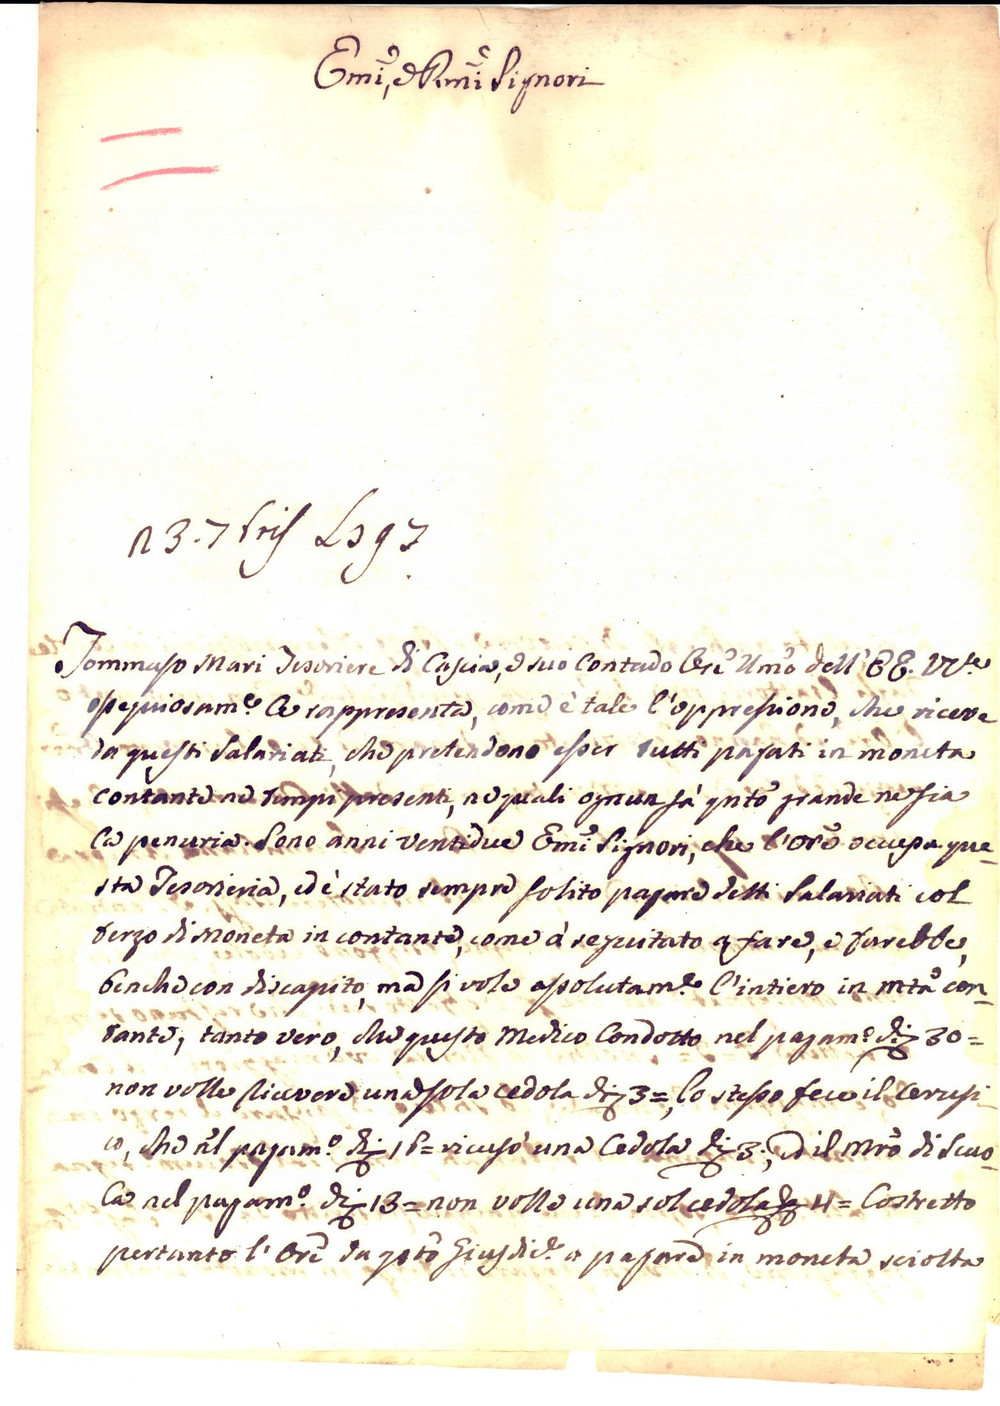 Emi, e Rmi Signori
23. 7bris 1797
Tommaso Mari Tesoriere di Cascia, e suo Contado Ore Umo dell' EE. VVre
ossequiosame. Le rappresenta, come è tale l'oppressione, che riceve
da questi Salariati, che pretendono esser tutti pagati in moneta
contante ne tempi presenti, ne quali ognun sà qnto grande ne sia
la penuria. Sono anni ventidue Emi Signori, che l'Ore occupa que=
sta Tesorieria, ed è stato sempre solito pagare detti Salariati col
terzo di moneta in contante, come à seguitato a fare, e farebbe,
benche con discapito, ma si vole assolutame. l'intiero in mta con=
tante; tanto vero, che questo Medico Condotto nel pagamo. di 30=
non volle ricevere una sola cedola di 3=, Lo stesso fece il Cerusi=
co, che nel pagamo. di 16= ricusò una Cedola di 3:, ed il Mro di Scuo=
la nel pagamo. di 13= non volle una sol cedola di 4= Costretto
pertanto l' Ore da qsto Giusdice. a pagare in moneta sciolta